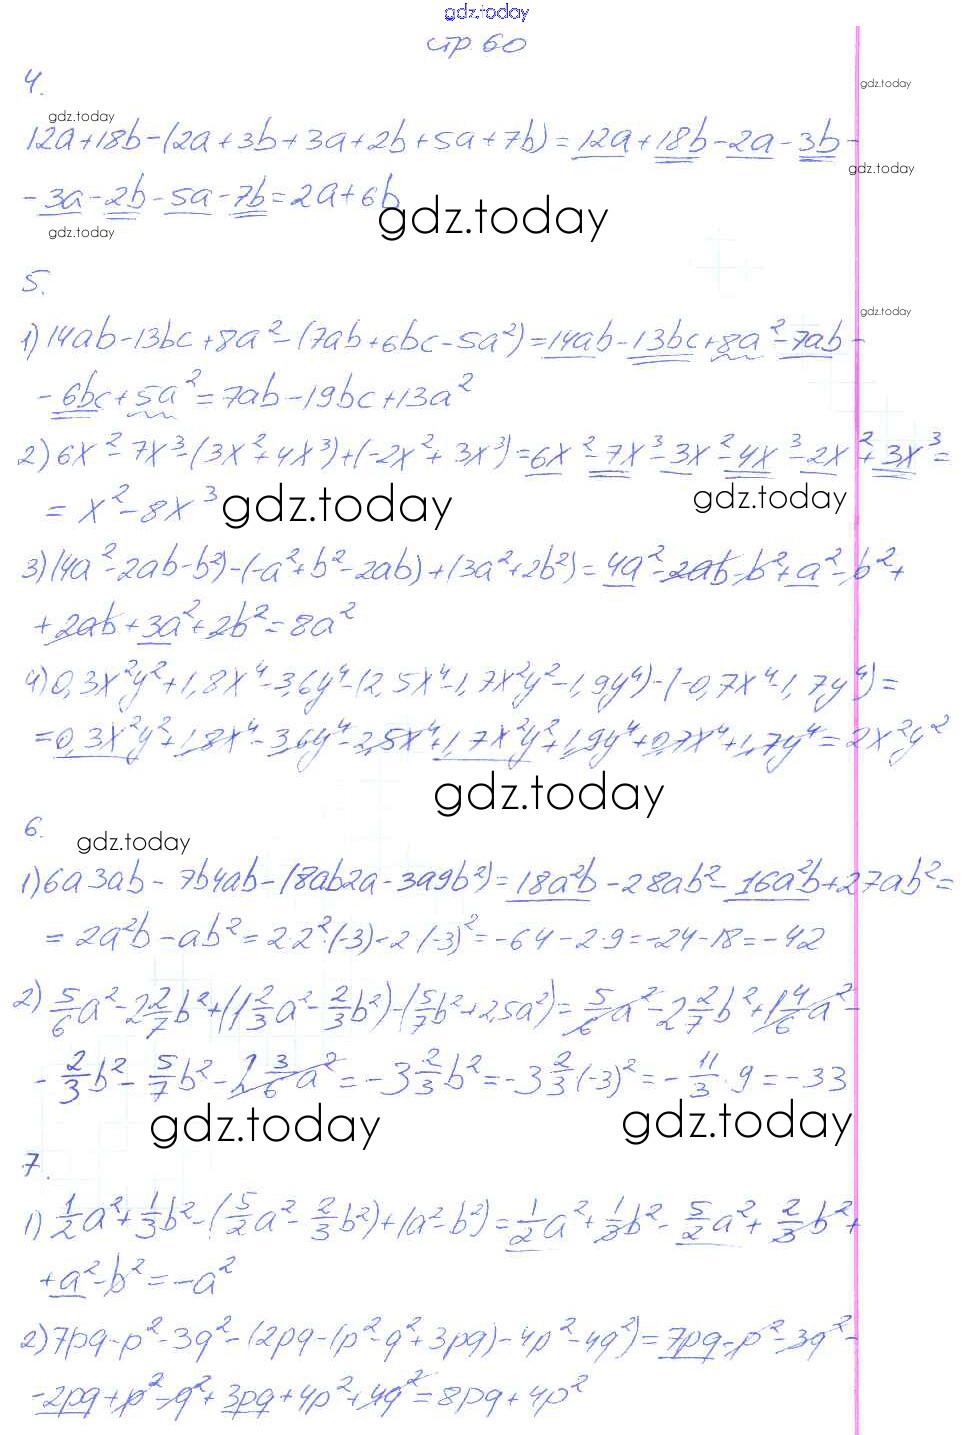 gdz.today
стр. 60
4.
gdz.today
gdz.today
12a+18b-(2a+3b+3a+2b+5a+7b)=12a+18b-2a-3b-
gdz.today
-3a-2b-5a-7b=2a+6b
gdz.today
gdz.today
5.
gdz.today
1) 14ab-13bc+8a²-(7ab+6bc-5a²)=14ab-13bc+8a²-7ab-
-6bc+5a²=7ab-19bc+13a²
2) 6x²-7x³-(3x²+4x³)+(-2x²+3x³)=6x²-7x³-3x²-4x³-2x²+3x³=
= x²-8x³
gdz.today
gdz.today
3) (4a²-2ab-b²)-(-a²+b²-2ab)+(3a²+2b²)=4a²-2ab-b²+a²-b²+
+2ab+3a²+2b²=8a²
4) 0,3x²y²+1,8x⁴-3,6y⁴-(2,5x⁴-1,7x²y²-1,9y⁴)-(-0,7x⁴-1,7y⁴)=
=0,3x²y²+1,8x⁴-3,6y⁴-2,5x⁴+1,7x²y²+1,9y⁴+0,7x⁴+1,7y⁴=2x²y²
gdz.today
6.
gdz.today
1) 6a3ab-7b4ab-(8ab2a-3a9b²)=18a²b-28ab²-16a²b+27ab²=
= 2a²b-ab²=2·2²·(-3)-2·(-3)²=-64-2·9=-24-18=-42
2) 5/6a²-2 2/7b²+(1 2/3a²-2/3b²)-(5/7b²+2,5a²)=5/6a²-2 2/7b²+1 4/6a²-
-2/3b²-5/7b²-2 3/6a²=-3 2/3b²=-3 2/3(-3)²=-11/3·9=-33
gdz.today
gdz.today
7.
1) 1/2a²+1/3b²-(5/2a²-2/3b²)+(a²-b²)=1/2a²+1/3b²-5/2a²+2/3b²+
+a²-b²=-a²
2) 7pq-p²-3q²-(2pq-(p²-q²+3pq)-4p²-4q²)=7pq-p²-3q²-
-2pq+p²-q²+3pq+4p²+4q²=8pq+4p²